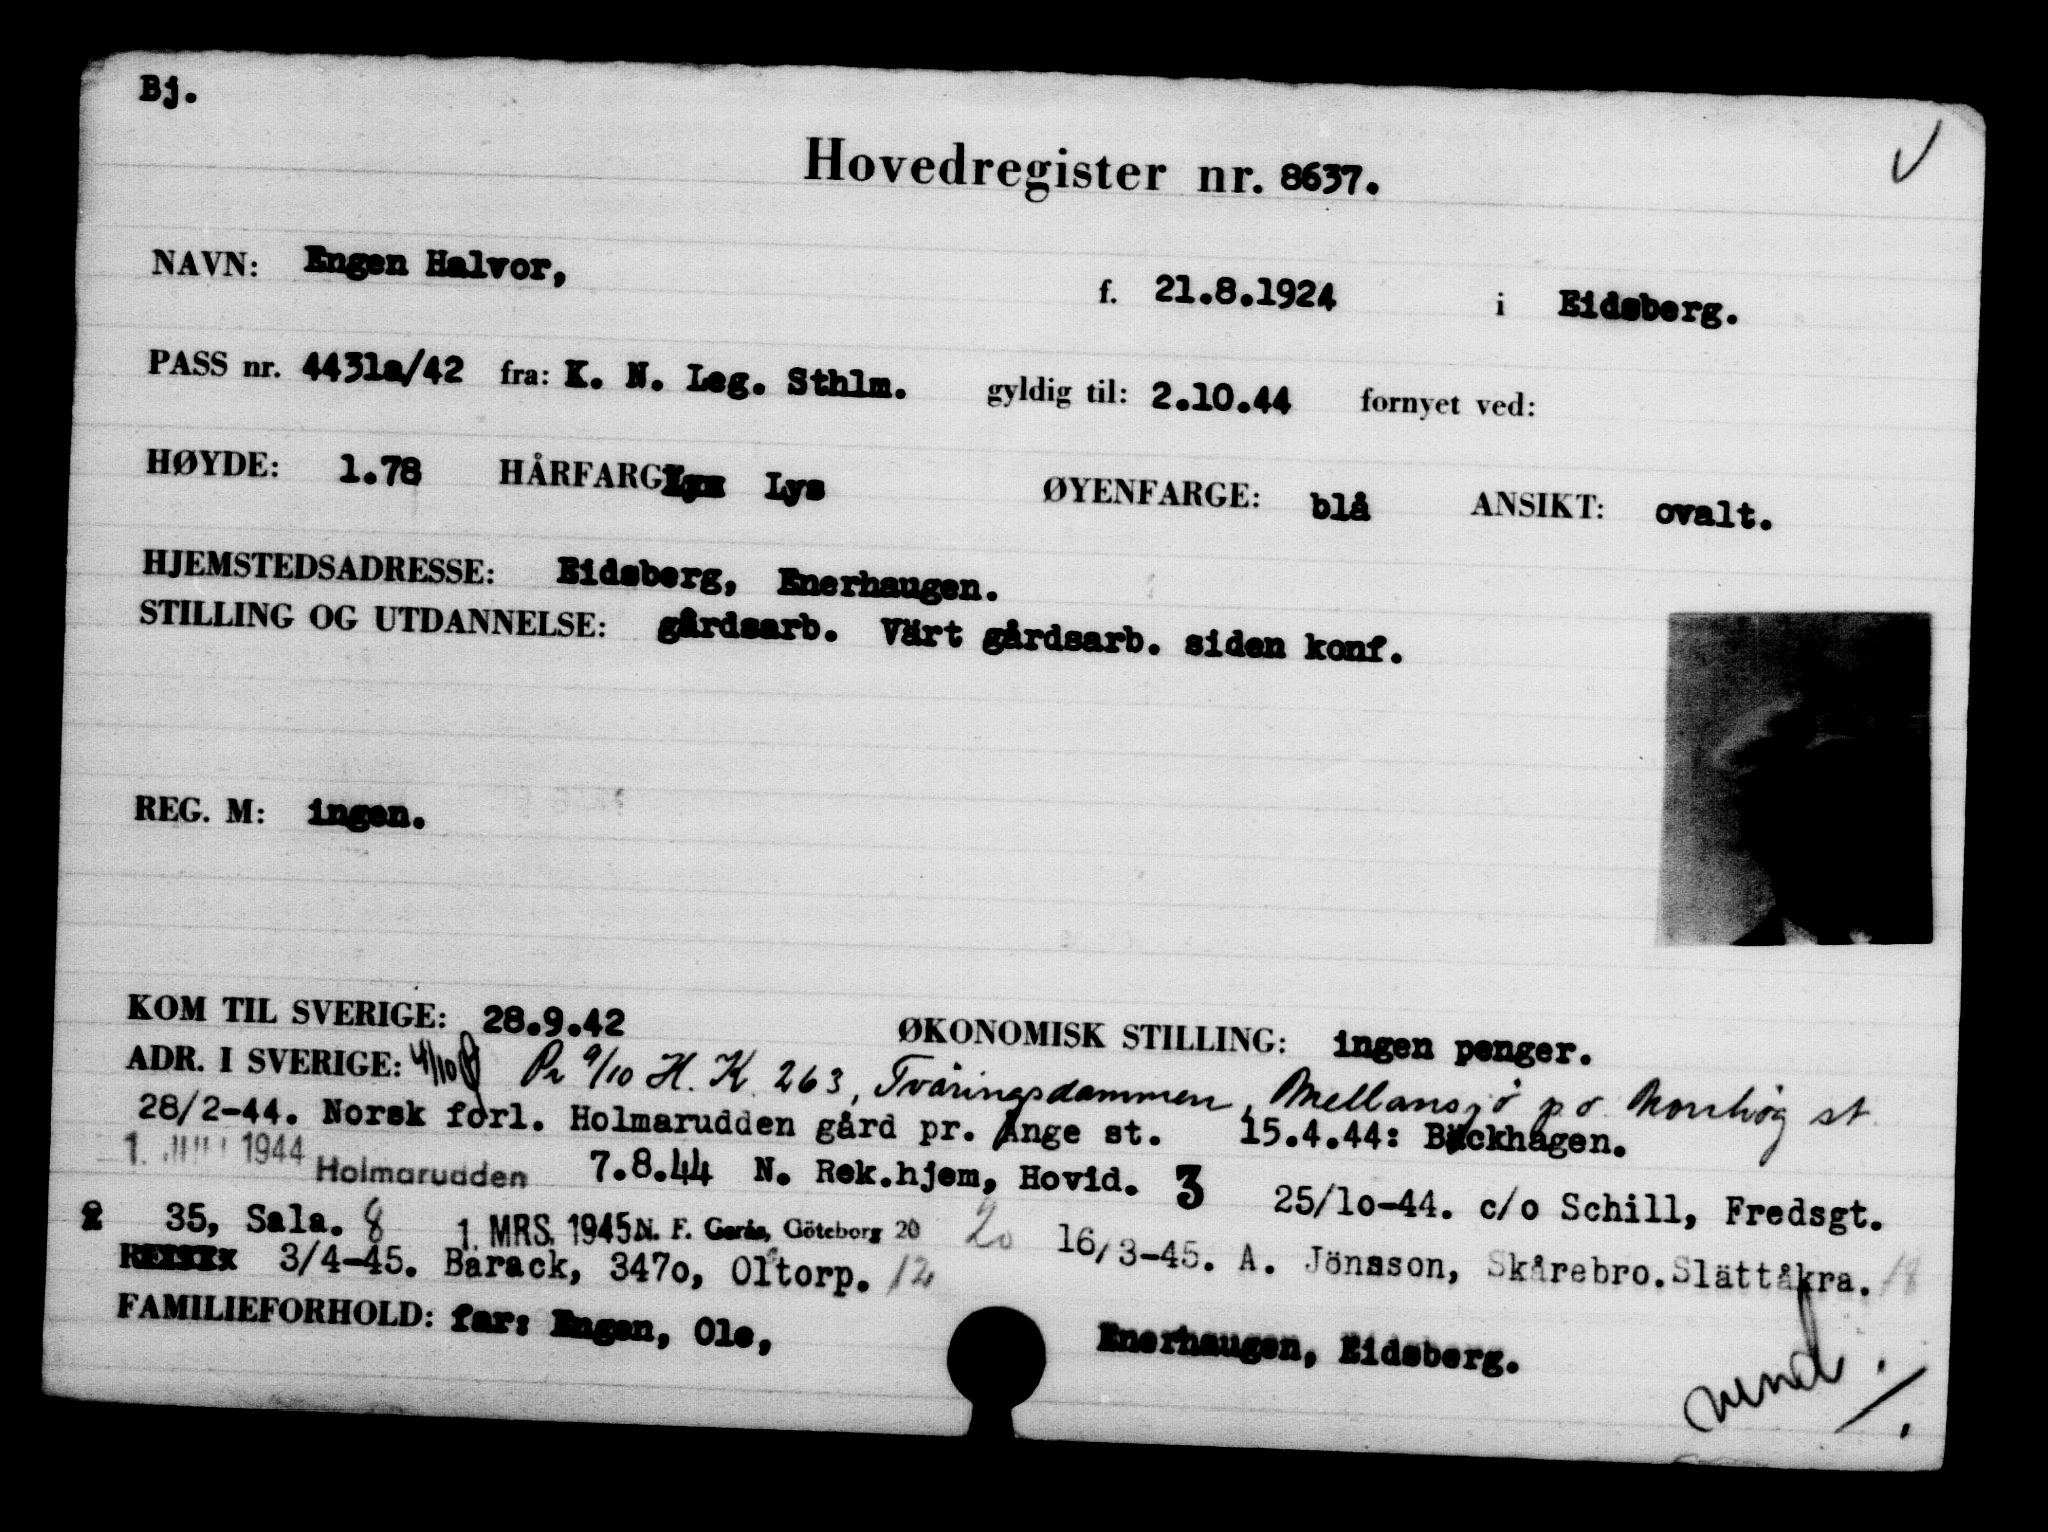 Bj.
Hovedregister nr. 8637.
NAVN: Engen Halvor,
f. 21.8.1924 i Eidsberg.
PASS nr. 4431a/42 fra: K. N. Leg. Sthlm. gyldig til: 2.10.44 fornyet ved:
HØYDE: 1.78 HÅRFARG Lys ØYENFARGE: blå ANSIKT: ovalt.
HJEMSTEDSADRESSE: Eidsberg, Enerhaugen.
STILLING OG UTDANNELSE: gårdsarb. Värt gårdsarb. siden konf.
REG. M: ingen.
KOM TIL SVERIGE: 28.9.42 ØKONOMISK STILLING: ingen penger.
ADR. I SVERIGE: 4/10 Pr 9/10 H. K. 263, Tväringsdammen, Mellansjö
28/2-44. Norsk forl. Holmarudden gård pr. Ånge st. 15.4.44: Bäckhagen.
1. JULI 1944 Holmarudden 7.8.44 N. Rek.hjem, Hovid. 3 25/lo-44. c/o Schill, Fredsgt.
2 35, Sala. 8 1. MRS. 1945 N. F. Gerås, Göteborg 20 20 16/3-45. A. Jönsson, Skårebro. Slättåkra. 18
3/4-45. Barack, 347o, Oltorp. 12
FAMILIEFORHOLD: far: Engen, Ole, Enerhaugen, Eidsberg.